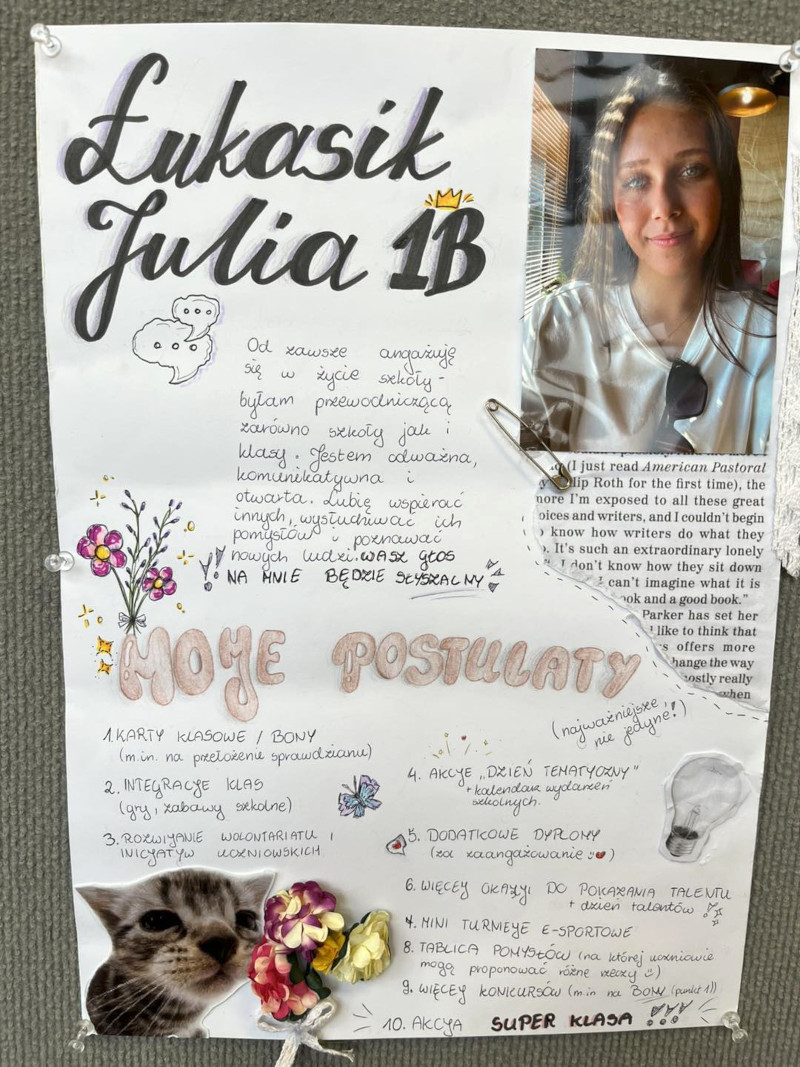 Łukasik
Julia 1B
Od zawsze angażuję
się w życie szkoły-
byłam przewodniczącą
zarówno szkoły jak i
klasy. Jestem odważna,
komunikatywna i
otwarta. Lubię wspierać
innych, wysłuchiwać ich
pomysłów i poznawać
nowych ludzi. WASZ GŁOS
NA MNIE BĘDZIE SŁYSZALNY
(I just read American Pastoral
lip Roth for the first time), the
more I'm exposed to all these great
oices and writers, and I couldn't begin
know how writers do what they
. It's such an extraordinary lonely
I don't know how they sit down
can't imagine what it is
ook and a good book."
Parker has set her
like to think that
s offers more
hange the way
ostly really
when
MOJE POSTULATY
(najważniejsze,
nie jedyne!)
1. KARTY KLASOWE / BONY
(m.in. na przełożenie sprawdzianu)
2. INTEGRACJE KLAS
(gry, zabawy szkolne)
3. ROZWIJANIE WOLONTARIATU I
INICJATYW UCZNIOWSKICH
4. AKCJE „DZIEŃ TEMATYCZNY"
+ kalendarz wydarzeń
szkolnych.
5. DODATKOWE DYPLOMY
(za zaangażowanie :)♥)
6. WIĘCEJ OKAZJI DO POKAZANIA TALENTU
+ dzień talentów
7. MINI TURNIEJE E-SPORTOWE
8. TABLICA POMYSŁÓW (na której uczniowie
mogą proponować różne rzeczy :))
9. WIĘCEJ KONKURSÓW (m.in na BONY (punkt 1))
10. AKCJA SUPER KLASA !!!